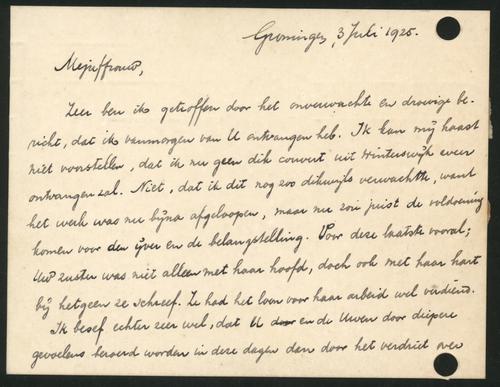 Groningen, 3 Juli 1925.
Mejuffrouw,
Zeer ben ik getroffen door het onverwachte en droevige be-
richt, dat ik vanmorgen van U ontvangen heb. Ik kan mij haast
niet voorstellen, dat ik nu geen dik couvert uit Winterswijk weer
ontvangen zal. Niet, dat ik dit nog zoo dikwijls verwachtte, want
het werk was nu bijna afgeloopen, maar nu zou juist de voldoening
komen voor den ijver en de belangstelling. Voor deze laatste vooral;
Uw zuster was niet alleen met haar hoofd, doch ook met haar hart
bij hetgeen ze schreef. Ze had het loon voor haar arbeid wel verdiend.
Ik besef echter zeer wel, dat U door en de Uwen door diepere
gevoelens beroerd worden in deze dagen dan door het verdriet over